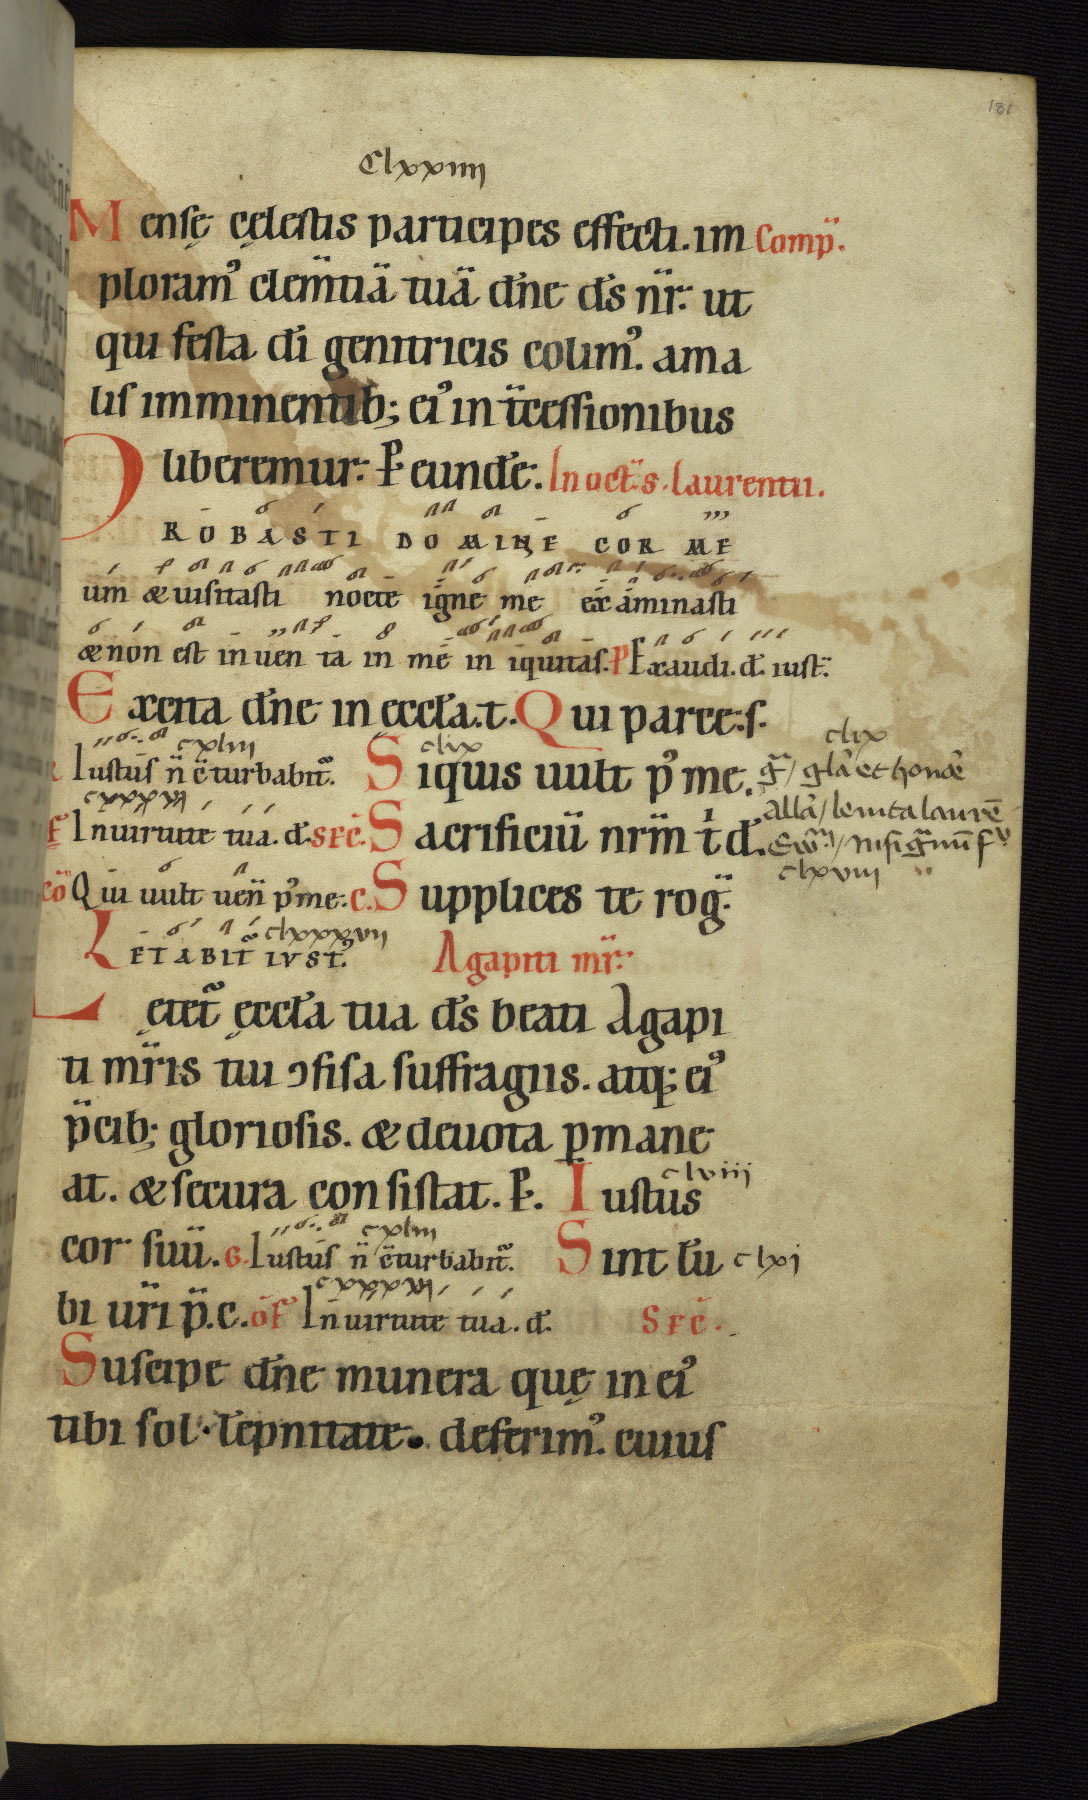 181
Clxxiiii
Mensę cęlestis participes effecti. im Comp̄.
ploram᾽ clem̄tiā tuā dn̄e ds̄ nr̄. ut
qui festa dī genitricis colim᾽. a ma
lis imminentib; ei᾽ int̄cessionibus
liberemur. P eunde. In oct̄. s. laurentii.
PROBASTI DOMINE COR ME
um̄ & uisitasti nocte igne me examinasti
& non est inuenta in me iniquitas. P Exaudi. d. iust̄.
Excita dn̄e in eccl̄a. t. Qui parce. s.
clix
cxliii clix
R Iustus n̄ c̄turbabit̄. Siquis uult p᾽ me. ḡ/ gl̄a et honōe
clxxxxiii all̄a/ leuita laurē
f In uirtute tua. d. sec̄. Sacrificiū nr̄m t̄ d. Ew̄/ nisi ḡnū f
clxviii
cō Qui uult uen̄ p᾽ me. c. Supplices te roḡ.
clxxxvii
LETABIT̄ IVST᾽. Agapiti mr̄.
Lętet̄ ęccl̄a tua ds̄ beati Agapi
ti mr̄is tui ɔfisa suffragiis. atq; ei᾽
p̄cib; gloriosis. & deuota pmane
at. & secura consistat. P. Iustus clviii
cxliii
cor suū. G. Iustus n̄ c̄turbabit̄. Sint t̄u clxi
clxxxxiii
bi ur̄i p̄. c. of In uirtute tua. d. Sec̄.
Suscipe dn̄e munera quę in ei᾽
tibi sol. lepnitate. deferim᾽. cuius